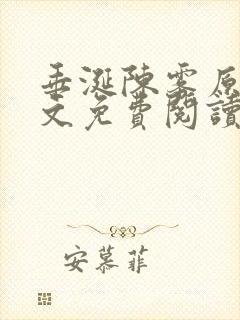 垂涎陳霧原
文免費閱讀
安慕菲